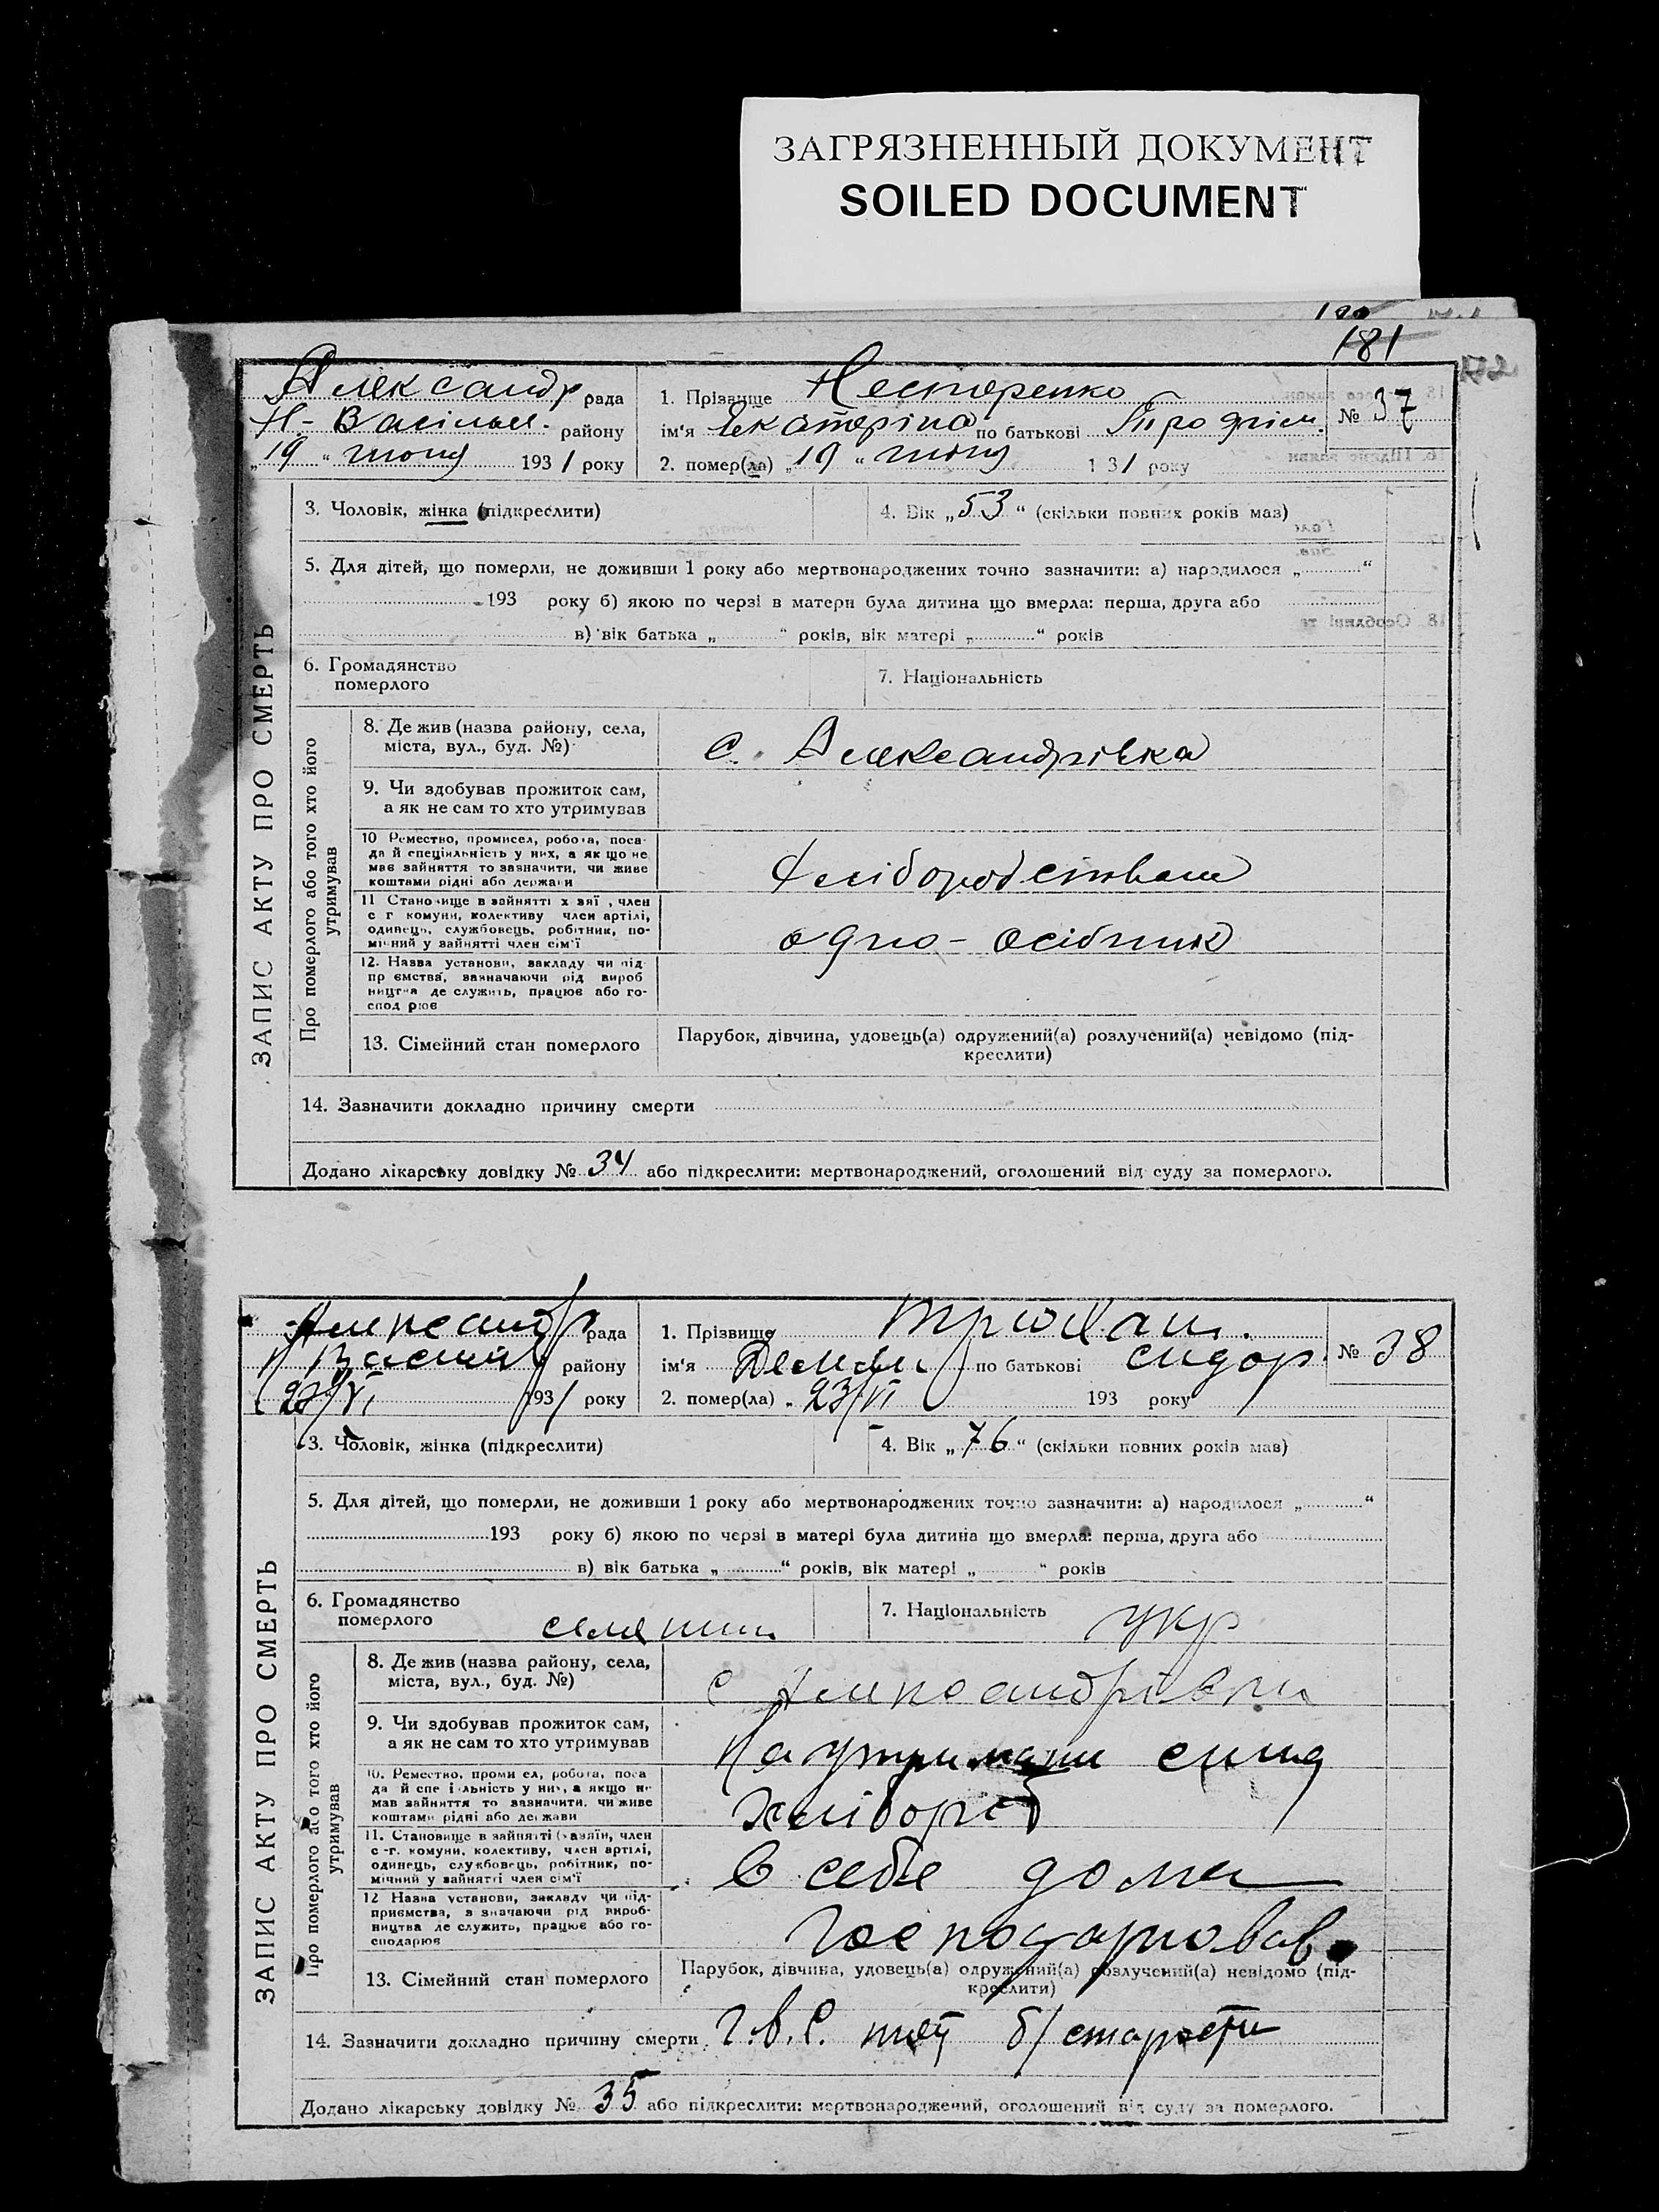 ЗАГРЯЗНЕННЫЙ ДОКУМЕНТ
SOILED DOCUMENT
181
Александр рада
1. Прізвище Нестеренко
№ 37
Н-Васільев. району
ім'я Екатеріна по батькові
„19 “ 1931 року
2. помер(ла) „19 “ 1 31 року
3. Чоловік, жінка (підкреслити)
4. Вік „53“ (скільки повних років мав)
5. Для дітей, що померли, не доживши 1 року або мертвонароджених точно зазначити: а) народилося „ “
193 року б) якою по черзі в матери була дитина що вмерла: перша, друга або
в) вік батька „ “ років, вік матері „ “ років
6. Громадянство
померлого
7. Національність
ЗАПИС АКТУ ПРО СМЕРТЬ
Про померлого або того хто його
утримував
8. Де жив (назва району, села,
міста, вул., буд. №)
с. Александрівка
9. Чи здобував прожиток сам,
а як не сам то хто утримував
10 Ремество, промисел, робота, поса-
да й спеціяльність у них, а як що не
має зайняття то зазначити, чи живе
коштами рідні або держави
11 Становище в зайнятті х зяї , член
с г комуни, колективу член артілі,
одинець, службовець, робітник, по-
мічний у зайнятті член сім'ї
одно-осібник
12. Назва установи, закладу чи під
пр ємства, зазначаючи рід вироб
ництва де служить, працює або го-
спод рює
13. Сімейний стан померлого
Парубок, дівчина, удовець(а) одружений(а) розлучений(а) невідомо (під-
креслити)
14. Зазначити докладно причину смерти
Додано лікарську довідку № 34 або підкреслити: мертвонароджений, оголошений від суду за померлого.
Александр рада
1. Прізвище
№ 38
Н Васил району
ім'я Демян по батькові Сидор.
23/VI 1931 року
2. помер(ла) „ 23/VI 193 року
3. Чоловік, жінка (підкреслити)
4. Вік „76“ (скільки повних років мав)
5. Для дітей, що померли, не доживши 1 року або мертвонароджених точно зазначити: а) народилося „ “
193 року б) якою по черзі в матері була дитина що вмерла: перша, друга або
в) вік батька „ “ років, вік матері „ “ років
6. Громадянство
померлого
селянин
7. Національність укр
ЗАПИС АКТУ ПРО СМЕРТЬ
Про померлого або того хто його
утримував
8. Де жив (назва району, села,
міста, вул., буд. №)
с Александрівки
9. Чи здобував прожиток сам,
а як не сам то хто утримував
На утримани сина
10. Ремество, проми ел, робота, поса
да й спе і льність у них, а якщо не
мав зайняття то зазначити, чи живе
коштами рідні або держави
хлібороб
11. Становище в зайнятті (хазяїн, член
с-г. комуни, колективу, член артілі,
одинець, службовець, робітник, по-
мічний у зайнятті член сім'ї
в себе дома
12 Назва установи, закладу чи під-
приємства, з значаючи рід вироб-
ництва де служить, працює або го-
сподарює
господарював
13. Сімейний стан померлого
Парубок, дівчина, удовець(а) одружений(а) розлучений(а) невідомо (під-
креслити)
14. Зазначити докладно причину смерти старости
Додано лікарську довідку № 35 або підкреслити: мертвонароджений, оголошений від суду за померлого.